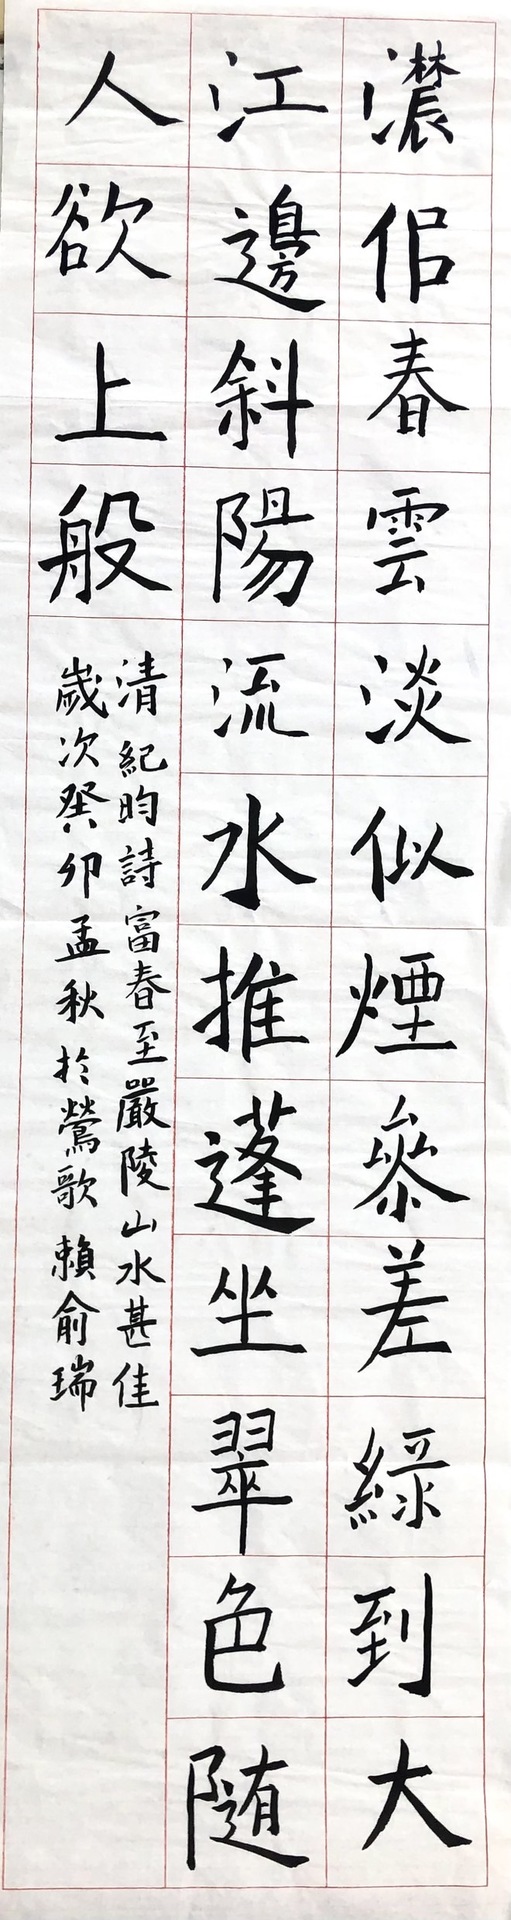 濃侣春雲淡似煙參差綠到大
江邊斜陽流水推蓬坐翠色随
人欲上般
清紀昀詩富春至嚴陵山水甚佳
歲次癸卯孟秋於鶯歌賴俞瑞